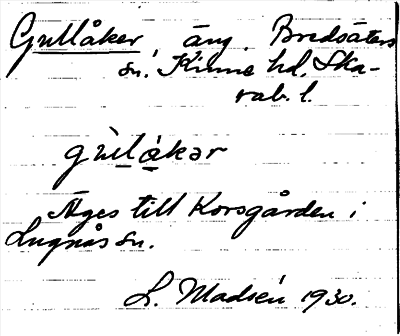 Gullåker äng. Bredsäters
sn. Kinne hd. Ska-
rab. l.
gùl̠å̠kər
Äges till Korsgården i
Lugnås sn.
L. Madsén 1930.